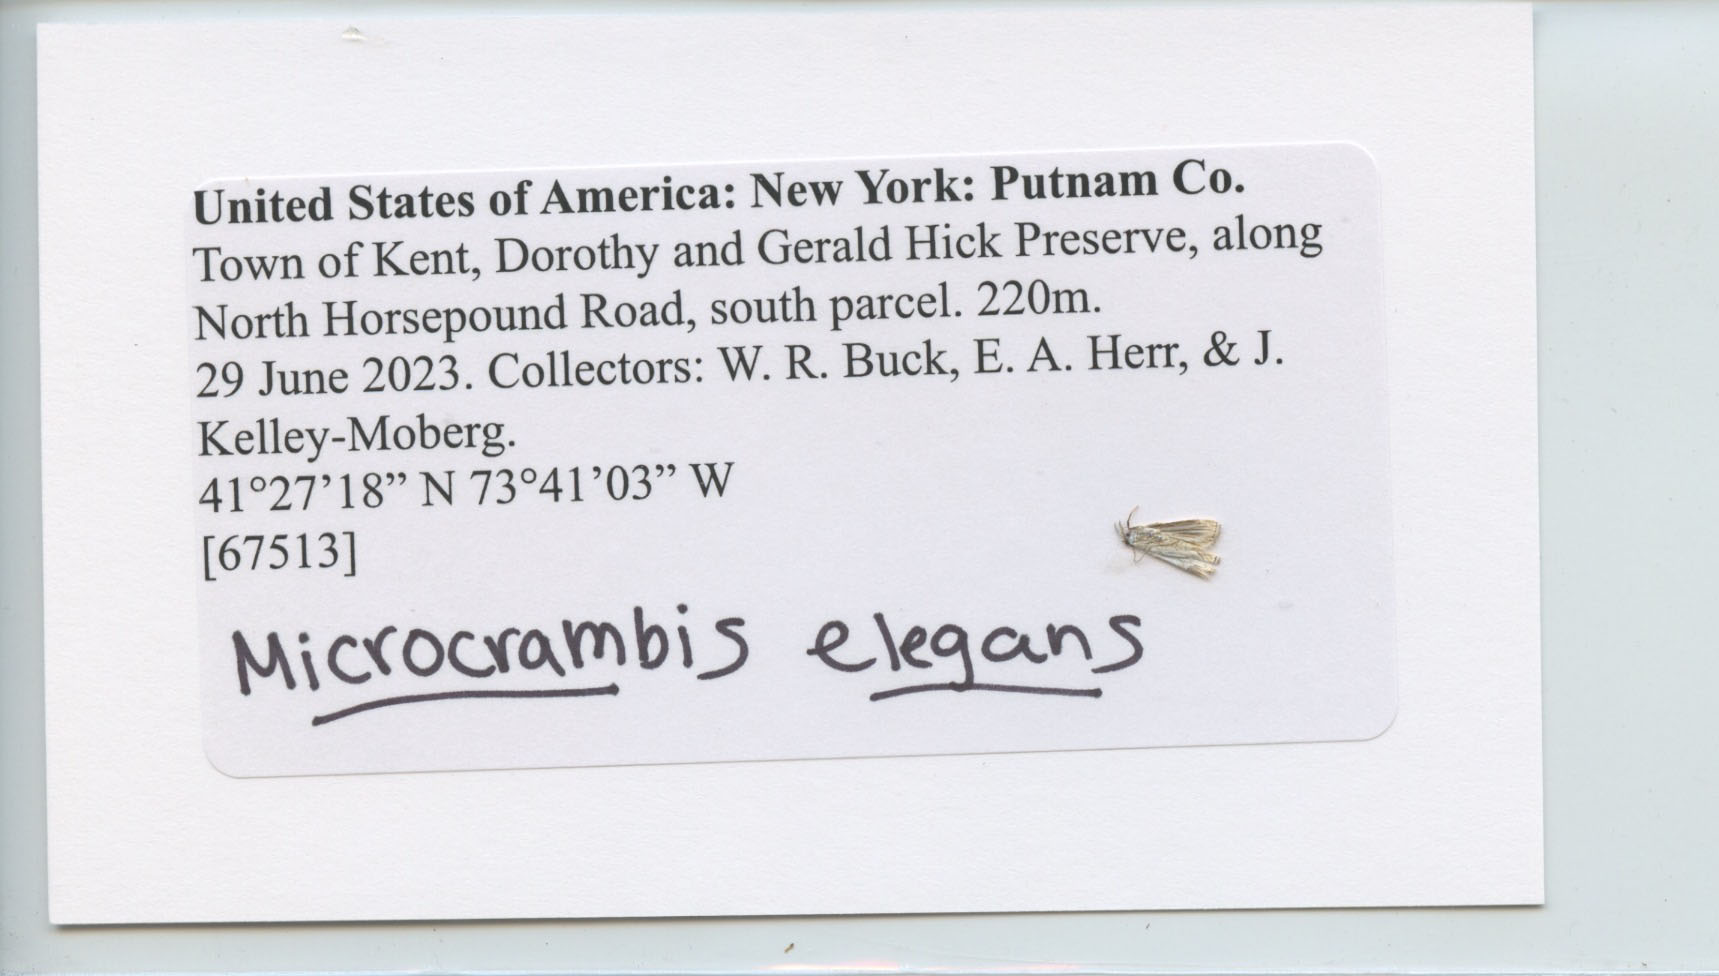 United States of America: New York: Putnam Co.
Town of Kent, Dorothy and Gerald Hick Preserve, along
North Horsepound Road, south parcel. 220m.
29 June 2023. Collectors: W. R. Buck, E. A. Herr, & J.
Kelley-Moberg.
41°27’18” N 73°41’03” W
[67513]
Microcrambis elegans